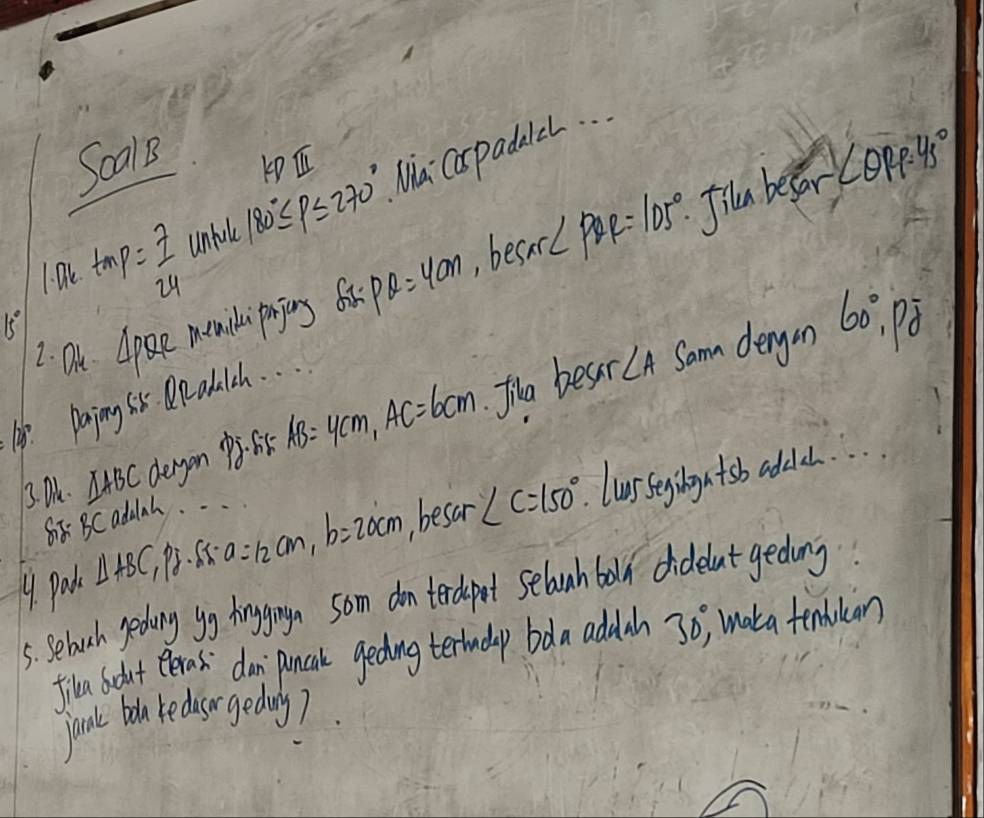 Soal B
KD III
1. Dik. tan p = 7/24 untuk 180° ≤ p ≤ 270°. Nilai Cos p adalah ...
2. Dik. ΔPQR memiliki panjang sisi PQ = 4cm, besar ∠ PQR = 105°. Jika besar ∠QRP = 45°
panjang sisi QR adalah ....
3. Dik. ΔABC dengan pj. sisi AB = 4cm, AC = 6cm. Jika besar ∠A sama dengan 60°, pj
sisi BC adalah ....
4. Pada ΔABC, pj. sisi a = 12 cm, b = 20cm, besar ∠ C = 150°. Luas segitiga tsb adalah ....
5. Sebuah gedung yg tingginya 50m dan terdapat sebuah bola didekat gedung.
Jika sudut elevasi dari puncak gedung terhadap bola adalah 30°, maka tentukan
jarak bola ke dasar gedung?
15°